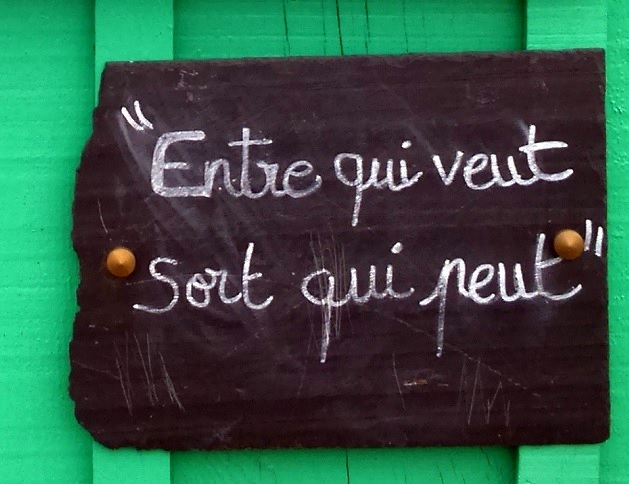 "Entre qui veut
sort qui peut"